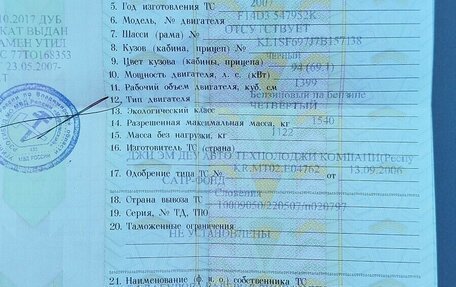 0.2017 ДУБ
КАТ ВЫДАН
АМЕН УТИЛ
С 77ТО168353
23.05.2007-
Т
МВД РОССИИ
5. Год изготовления ТС 2007
6. Модель, № двигателя F14D3 547982K
7. Шасси (рама) № ОТСУТСТВУЕТ
8. Кузов (кабина, прицеп) № KL1SF697J7B157138
9. Цвет кузова (кабины, прицепа) ЧЕРНЫЙ
10. Мощность двигателя, л. с. (кВт) 94 (69.1)
11. Рабочий объем двигателя, куб. см 1399
12. Тип двигателя Бензиновый на бензине
13. Экологический класс ЧЕТВЕРТЫЙ
14. Разрешенная максимальная масса, кг 1540
15. Масса без нагрузки, кг 1122
16. Изготовитель ТС (страна)
ДЖИ ЭМ ДЕУ АВТО ТЕХНОЛОДЖИ КОМПАНИ(Респу
17. Одобрение типа ТС № KR.MT02.E04762 от 13.09.2006
САТР-ФОНД
18. Страна вывоза ТС Словения
19. Серия, № ТД, ТПО 10009050/220507/п020797
20. Таможенные ограничения
НЕ УСТАНОВЛЕНЫ
21. Наименование (ф. и. о.) собственника ТС